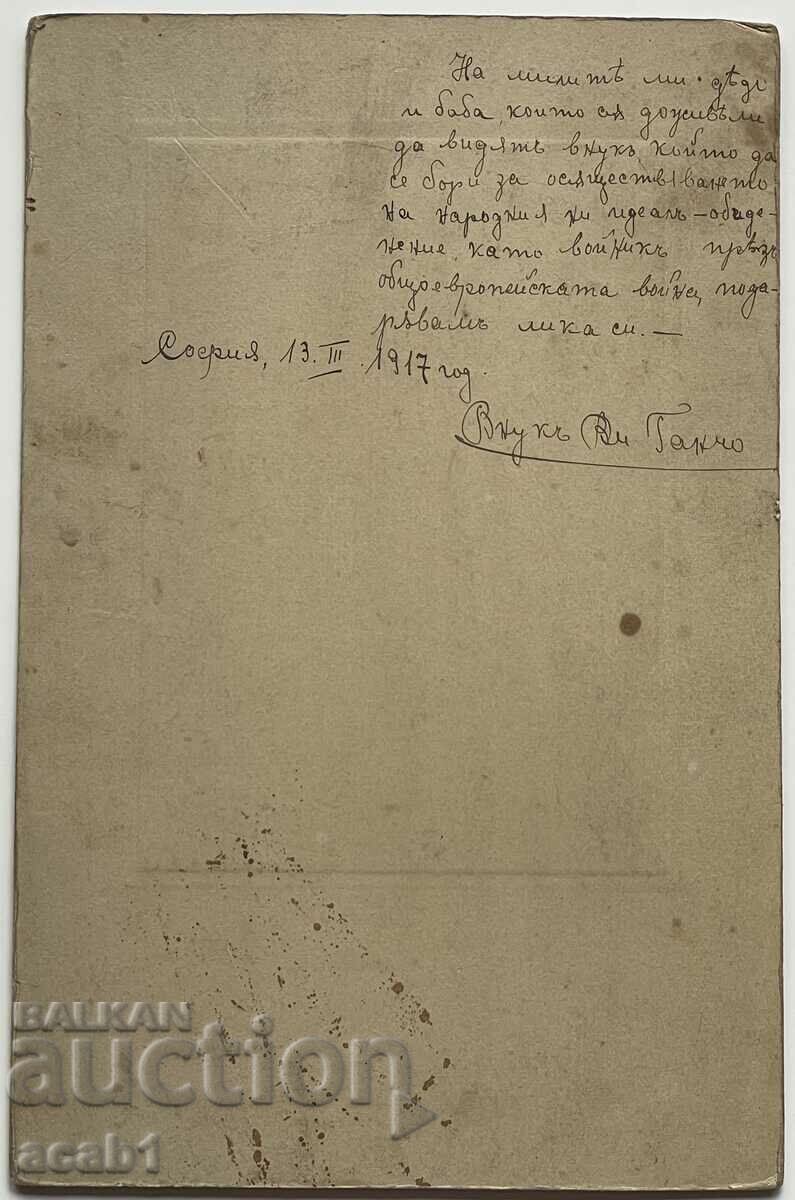 На милитѣ ми дѣдо
и баба, които сѫ доживѣли
да видятъ внукъ, който да
се бори за осѫществяването
на народния ни идеалъ – обиде-
нение, като войникъ прѣзъ
общоевропейската война, пода-
рявамъ лика си. –
София, 13. III. 1917 год.
Внукъ Ви Ганчо
BALKAN
auction
acab1